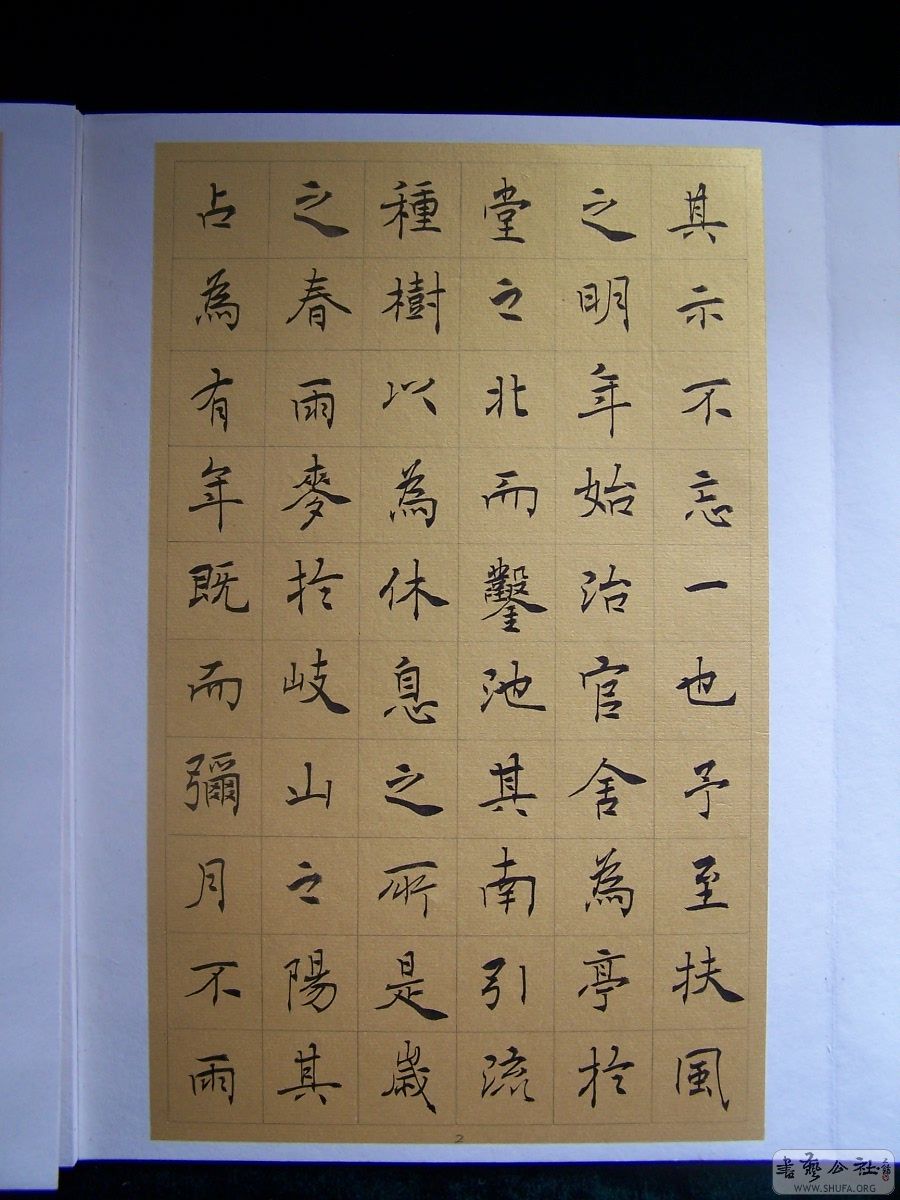 其示不忘一也予至扶風
之明年始治官舍為亭於
堂之北而鑿池其南引流
種樹以為休息之所是歲
之春雨麥於岐山之陽其
占為有年既而彌月不雨
2
書藝公社
WWW.SHUFA.ORG